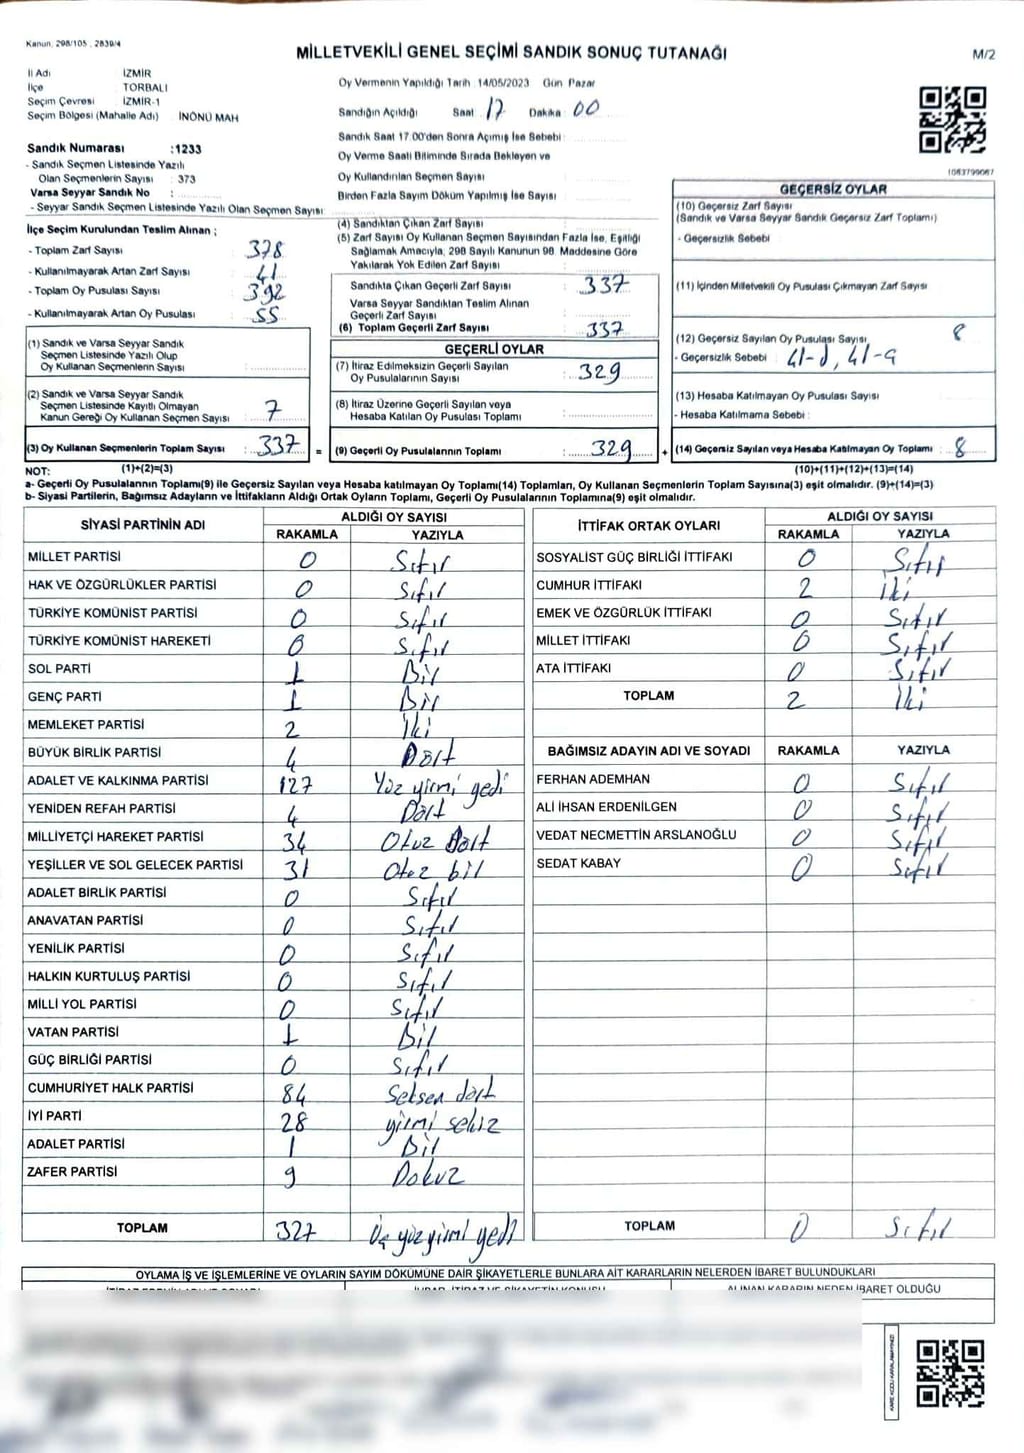 Kanun, 298/105 , 2839/4
MİLLETVEKİLİ GENEL SEÇİMİ SANDIK SONUÇ TUTANAĞI
M/2
İl Adı İZMİR
İlçe TORBALI
Seçim Çevresi İZMİR-1
Seçim Bölgesi (Mahalle Adı) : İNÖNÜ MAH
Sandık Numarası :1233
- Sandık Seçmen Listesinde Yazılı
Olan Seçmenlerin Sayısı : 373
Varsa Seyyar Sandık No :
- Seyyar Sandık Seçmen Listesinde Yazılı Olan Seçmen Sayısı:
İlçe Seçim Kurulundan Teslim Alınan ;
- Toplam Zarf Sayısı : 378
- Kullanılmayarak Artan Zarf Sayısı : 41
- Toplam Oy Pusulası Sayısı : 392
- Kullanılmayarak Artan Oy Pusulası : 55
(1) Sandık ve Varsa Seyyar Sandık
Seçmen Listesinde Yazılı Olup
Oy Kullanan Seçmenlerin Sayısı :
(2) Sandık ve Varsa Seyyar Sandık
Seçmen Listesinde Kayıtlı Olmayan
Kanun Gereği Oy Kullanan Seçmen Sayısı : 7
(3) Oy Kullanan Seçmenlerin Toplam Sayısı : 337 =
Oy Vermenin Yapıldığı Tarih : 14/05/2023 Gün Pazar
Sandığın Açıldığı Saat : 17 Dakika : 00
Sandık Saat 17.00'den Sonra Açımış İse Sebebi :
Oy Verme Saati Bitiminde Sırada Bekleyen ve
Oy Kullandırılan Seçmen Sayısı :
Birden Fazla Sayım Döküm Yapılmış İse Sayısı :
(4) Sandıktan Çıkan Zarf Sayısı :
(5) Zarf Sayısı Oy Kullanan Seçmen Sayısından Fazla İse, Eşitliği
Sağlamak Amacıyla, 298 Sayılı Kanunun 98. Maddesine Göre
Yakılarak Yok Edilen Zarf Sayısı :
Sandıkta Çıkan Geçerli Zarf Sayısı : 337
Varsa Seyyar Sandıktan Teslim Alınan
Geçerli Zarf Sayısı :
(6) Toplam Geçerli Zarf Sayısı : 337
GEÇERLİ OYLAR
(7) İtiraz Edilmeksizin Geçerli Sayılan
Oy Pusulalarının Sayısı : 329
(8) İtiraz Üzerine Geçerli Sayılan veya
Hesaba Katılan Oy Pusulası Toplamı :
(9) Geçerli Oy Pusulalarının Toplamı : 329 +
1083799087
GEÇERSİZ OYLAR
(10) Geçersiz Zarf Sayısı
(Sandık ve Varsa Seyyar Sandık Geçersiz Zarf Toplamı)
- Geçersizlik Sebebi :
(11) İçinden Milletvekili Oy Pusulası Çıkmayan Zarf Sayısı
(12) Geçersiz Sayılan Oy Pusulası Sayısı 8
- Geçersizlik Sebebi :
(13) Hesaba Katılmayan Oy Pusulası Sayısı
- Hesaba Katılmama Sebebi :
(14) Geçersiz Sayılan veya Hesaba Katılmayan Oy Toplamı : 8
NOT: (1)+(2)=(3) (10)+(11)+(12)+(13)=(14)
a- Geçerli Oy Pusulalarının Toplamı(9) ile Geçersiz Sayılan veya Hesaba katılmayan Oy Toplamı(14) Toplamları, Oy Kullanan Seçmenlerin Toplam Sayısına(3) eşit olmalıdır. (9)+(14)=(3)
b- Siyasi Partilerin, Bağımsız Adayların ve İttifakların Aldığı Ortak Oyların Toplamı, Geçerli Oy Pusulalarının Toplamına(9) eşit olmalıdır.
SİYASİ PARTİNİN ADI ALDIĞI OY SAYISI
RAKAMLA YAZIYLA
MİLLET PARTİSİ 0 Sıfır
HAK VE ÖZGÜRLÜKLER PARTİSİ 0 Sıfır
TÜRKİYE KOMÜNİST PARTİSİ 0 Sıfır
TÜRKİYE KOMÜNİST HAREKETİ 0 Sıfır
SOL PARTİ 1 Bir
GENÇ PARTİ 1 Bir
MEMLEKET PARTİSİ 2 İki
BÜYÜK BİRLİK PARTİSİ 4 Dört
ADALET VE KALKINMA PARTİSİ 127 Yüz yirmi yedi
YENİDEN REFAH PARTİSİ 4 Dört
MİLLİYETÇİ HAREKET PARTİSİ 34 Otuz Dört
YEŞİLLER VE SOL GELECEK PARTİSİ 31 Otuz bir
ADALET BİRLİK PARTİSİ 0 Sıfır
ANAVATAN PARTİSİ 0 Sıfır
YENİLİK PARTİSİ 0 Sıfır
HALKIN KURTULUŞ PARTİSİ 0 Sıfır
MİLLİ YOL PARTİSİ 0 Sıfır
VATAN PARTİSİ 1 Bir
GÜÇ BİRLİĞİ PARTİSİ 0 Sıfır
CUMHURİYET HALK PARTİSİ 84 Seksen dört
İYİ PARTİ 28 yirmi sekiz
ADALET PARTİSİ 1 Bir
ZAFER PARTİSİ 9 Dokuz
TOPLAM 327 Üç yüz yirmi yedi
İTTİFAK ORTAK OYLARI ALDIĞI OY SAYISI
RAKAMLA YAZIYLA
SOSYALİST GÜÇ BİRLİĞİ İTTİFAKI 0 Sıfır
CUMHUR İTTİFAKI 2 İki
EMEK VE ÖZGÜRLÜK İTTİFAKI 0 Sıfır
MİLLET İTTİFAKI 0 Sıfır
ATA İTTİFAKI 0 Sıfır
TOPLAM 2 İki
BAĞIMSIZ ADAYIN ADI VE SOYADI RAKAMLA YAZIYLA
FERHAN ADEMHAN 0 Sıfır
ALİ İHSAN ERDENİLGEN 0 Sıfır
VEDAT NECMETTİN ARSLANOĞLU 0 Sıfır
SEDAT KABAY 0 Sıfır
TOPLAM 0 Sıfır
OYLAMA İŞ VE İŞLEMLERİNE VE OYLARIN SAYIM DÖKÜMÜNE DAİR ŞİKAYETLERLE BUNLARA AİT KARARLARIN NELERDEN İBARET BULUNDUKLARI
ALINAN KARARIN NEDEN İBARET OLDUĞU